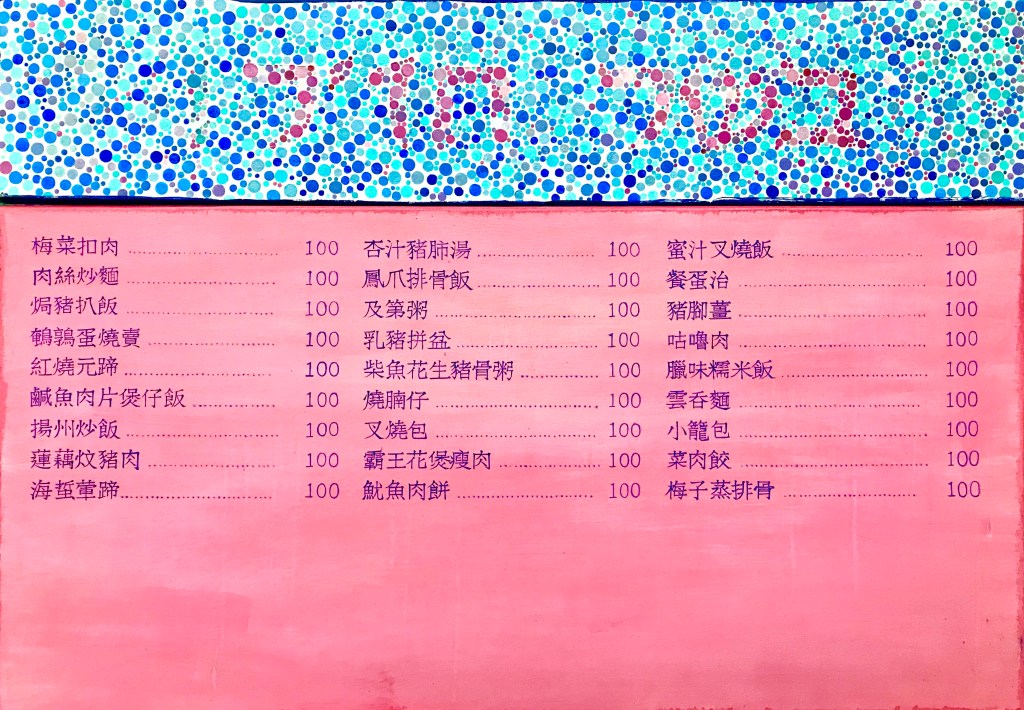 בשר חזיר
梅菜扣肉 ........ 100
肉絲炒麵 ........ 100
焗豬扒飯 ........ 100
鵪鶉蛋燒賣 ........ 100
紅燒元蹄 ........ 100
鹹魚肉片煲仔飯 ........ 100
揚州炒飯 ........ 100
蓮藕炆豬肉 ........ 100
海蜇葷蹄 ........ 100
杏汁豬肺湯 ........ 100
鳳爪排骨飯 ........ 100
及第粥 ........ 100
乳豬拼盆 ........ 100
柴魚花生豬骨粥 ........ 100
燒腩仔 ........ 100
叉燒包 ........ 100
霸王花煲瘦肉 ........ 100
魷魚肉餅 ........ 100
蜜汁叉燒飯 ........ 100
餐蛋治 ........ 100
豬腳薑 ........ 100
咕嚕肉 ........ 100
臘味糯米飯 ........ 100
雲吞麵 ........ 100
小籠包 ........ 100
菜肉餃 ........ 100
梅子蒸排骨 ........ 100